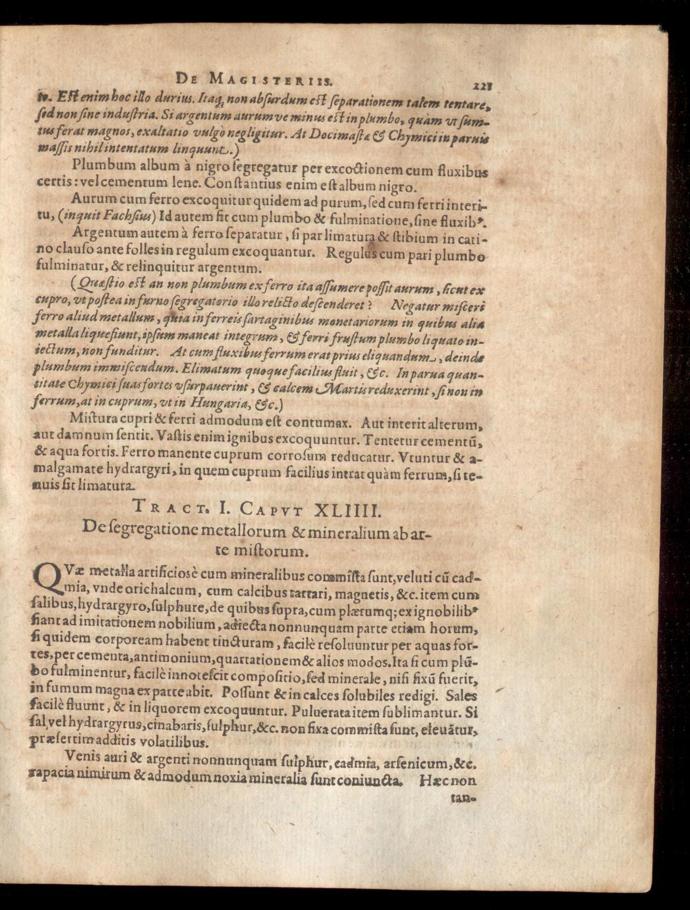 DE MAGISTERIIS. 221
to. Est enim hoc illo durius. Itaq; non absurdum est separationem talem tentare,
sed non sine industria. Si argentum aurumve minus est in plumbo, quàm vt sum-
tus ferat magnos, exaltatio vulgò negligitur. At Docimastæ & Chymici in paruis
massis nihil intentatum linquunt.)
Plumbum album à nigro segregatur per excoctionem cum fluxibus
certis: vel cementum lene. Constantius enim est album nigro.
Aurum cum ferro excoquitur quidem ad purum, sed cum ferri interi-
tu, (inquit Fachsius) Id autem fit cum plumbo & fulminatione, sine fluxibꝰ.
Argentum autem à ferro separatur, si par limatura & stibium in cati-
no clauso ante folles in regulum excoquantur. Regulus cum pari plumbo
fulminatur, & relinquitur argentum.
(Quæstio est an non plumbum ex ferro ita assumere possit aurum, sicut ex
cupro, vt postea in furno segregatorio illo relicto descenderet? Negatur misceri
ferro aliud metallum, quia in ferreis sartaginibus monetariorum in quibus alia
metalla liquefiunt, ipsum maneat integrum, & ferri frustum plumbo liquato in-
iectum, non funditur. At cum fluxibus ferrum erat prius eliquandum, deinde
plumbum immiscendum. Elimatum quoque facilius fluit, &c. In parua quan-
titate Chymici suas fortes vsurpauerint, & calcem Martis reduxerint, si non in
ferrum, at in cuprum, vt in Hungaria, &c.)
Mistura cupri & ferri admodum est contumax. Aut interit alterum,
aut damnum sentit. Vastis enim ignibus excoquuntur. Tentetur cementū,
& aqua fortis. Ferro manente cuprum corrosum reducatur. Vtuntur & a-
malgamate hydrargyri, in quem cuprum facilius intrat quàm ferrum, si te-
nuis sit limatura.
TRACT. I. CAPVT XLIIII.
De segregatione metallorum & mineralium ab ar-
te mistorum.
QVæ metalla artificiosè cum mineralibus commista sunt, veluti cū cad-
mia, vnde orichalcum, cum calcibus tartari, magnetis, &c. item cum
salibus, hydrargyro, sulphure, de quibus supra, cum plærumq; ex ignobilibꝰ
fiant ad imitationem nobilium, adiecta nonnunquam parte etiam horum,
si quidem corpoream habent tincturam, facilè resoluuntur per aquas for-
tes, per cementa, antimonium, quartationem & alios modos. Ita si cum plū-
bo fulminentur, facilè innotescit compositio, sed minerale, nisi fixū fuerit,
in fumum magna ex parte abit. Possunt & in calces solubiles redigi. Sales
facilè fluunt, & in liquorem excoquuntur. Puluerata item sublimantur. Si
sal, vel hydrargyrus, cinabaris, sulphur, &c. non fixa commista sunt, eleuātur,
præsertim additis volatilibus.
Venis auri & argenti nonnunquam sulphur, cadmia, arsenicum, &c.
rapacia nimirum & admodum noxia mineralia sunt coniuncta. Hæc non
tan-